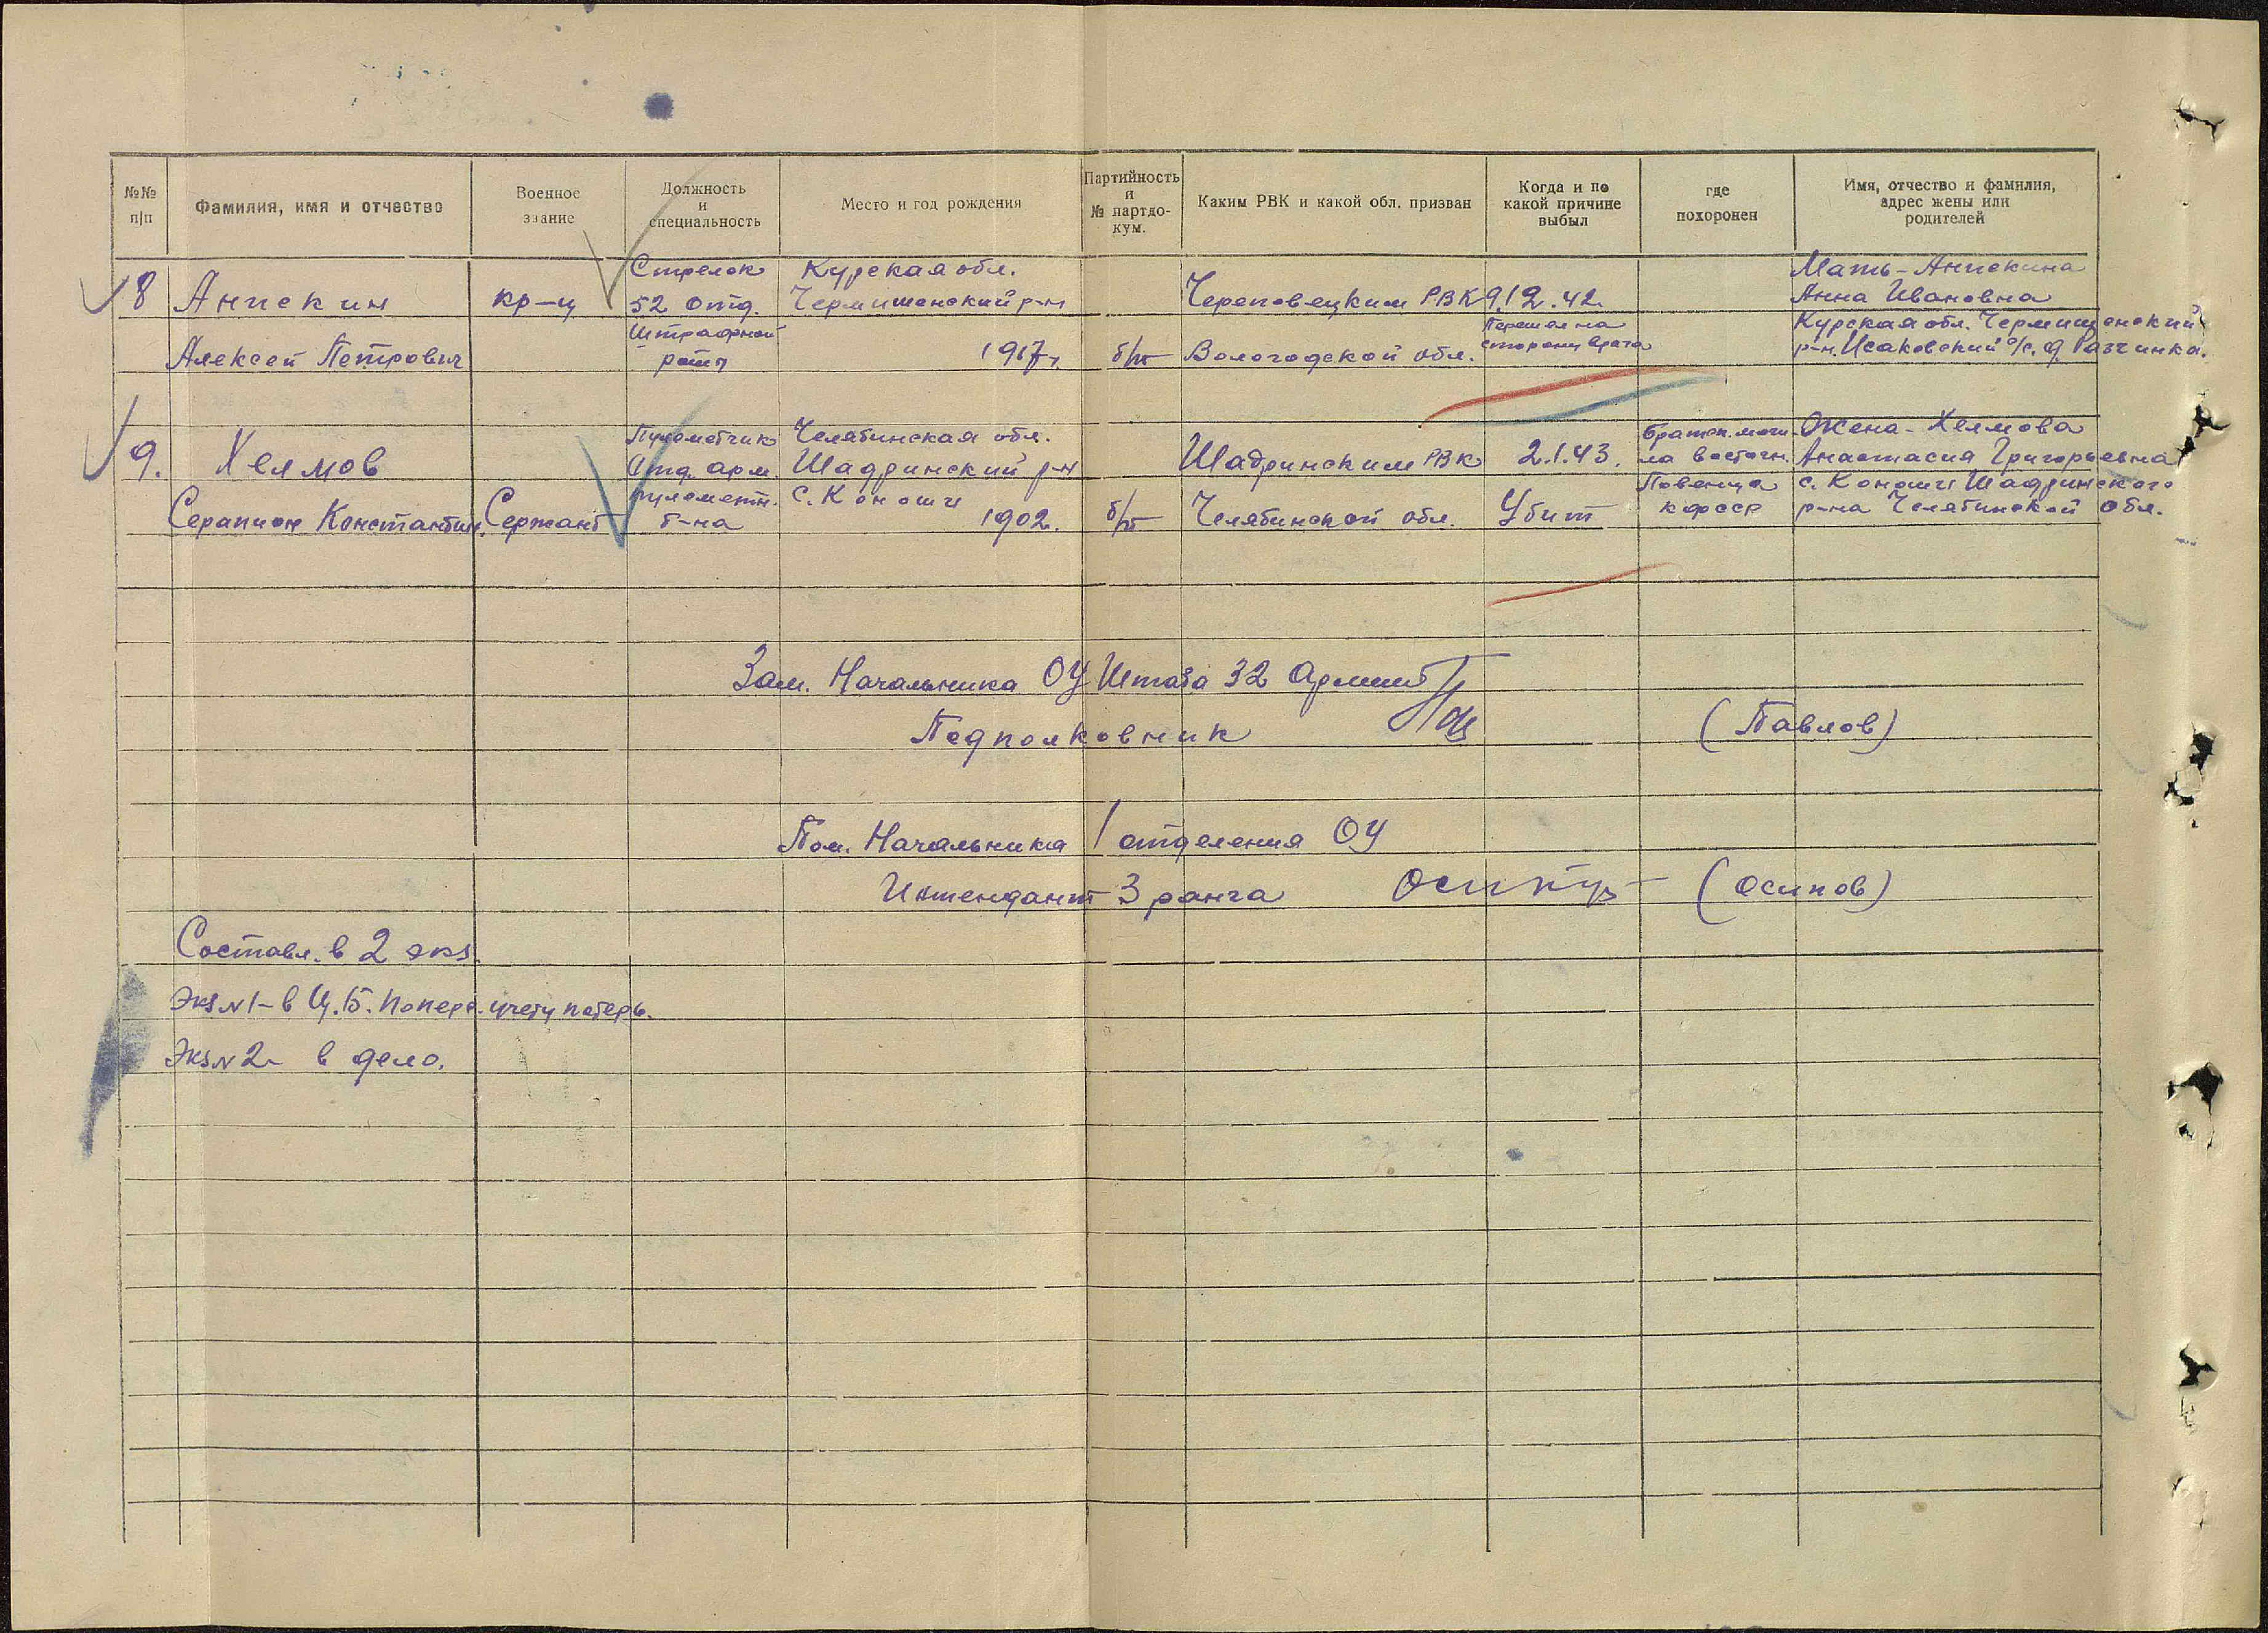 №№ п|п
Фамилия, имя и отчество
Военное звание
Должность и специальность
Место и год рождения
Партийность и № партдо-кум.
Каким РВК и какой обл. призван
Когда и по какой причине выбыл
где похоронен
Имя, отчество и фамилия, адрес жены или родителей
8
Анпекин
Алексей Петрович
кр-ц
Стрелок
52 отд.
Штрафной
роты
Курская обл.
Чермишенский р-н
1917г.
б/п
Череповецким РВК
Вологодской обл.
9.12.42.
Перешел на
сторону врага
Мать - Анпекина
Анна Ивановна
Курская обл. Чермишенский
р-н. Исаковский с/с. д.
9.
Хелмов
Серапион Константин.
Сержант
Пулеметчик
Отд. арм.
пулеметн.
б-на
Челябинская обл.
Шадринский р-н
с. Коноши
1902.
б/п
Шадринским РВК
Челябинской обл.
2.1.43.
Убит
Братск. моги-
ла восточн.
Повенца
КФССР
Жена - Хелмова
Анастасия Григорьевна
с. Коноши Шадринского
р-на Челябинской обл.
Зам. Начальника ОУ Штаба 32 Армии
Подполковник
(Павлов)
Пом. Начальника 1 отделения ОУ
Интендант 3 ранга
(Осипов)
Составл. в 2 экз.
Экз №1 - в Ц.Б. по перс. учету потерь.
Экз №2 - в дело.